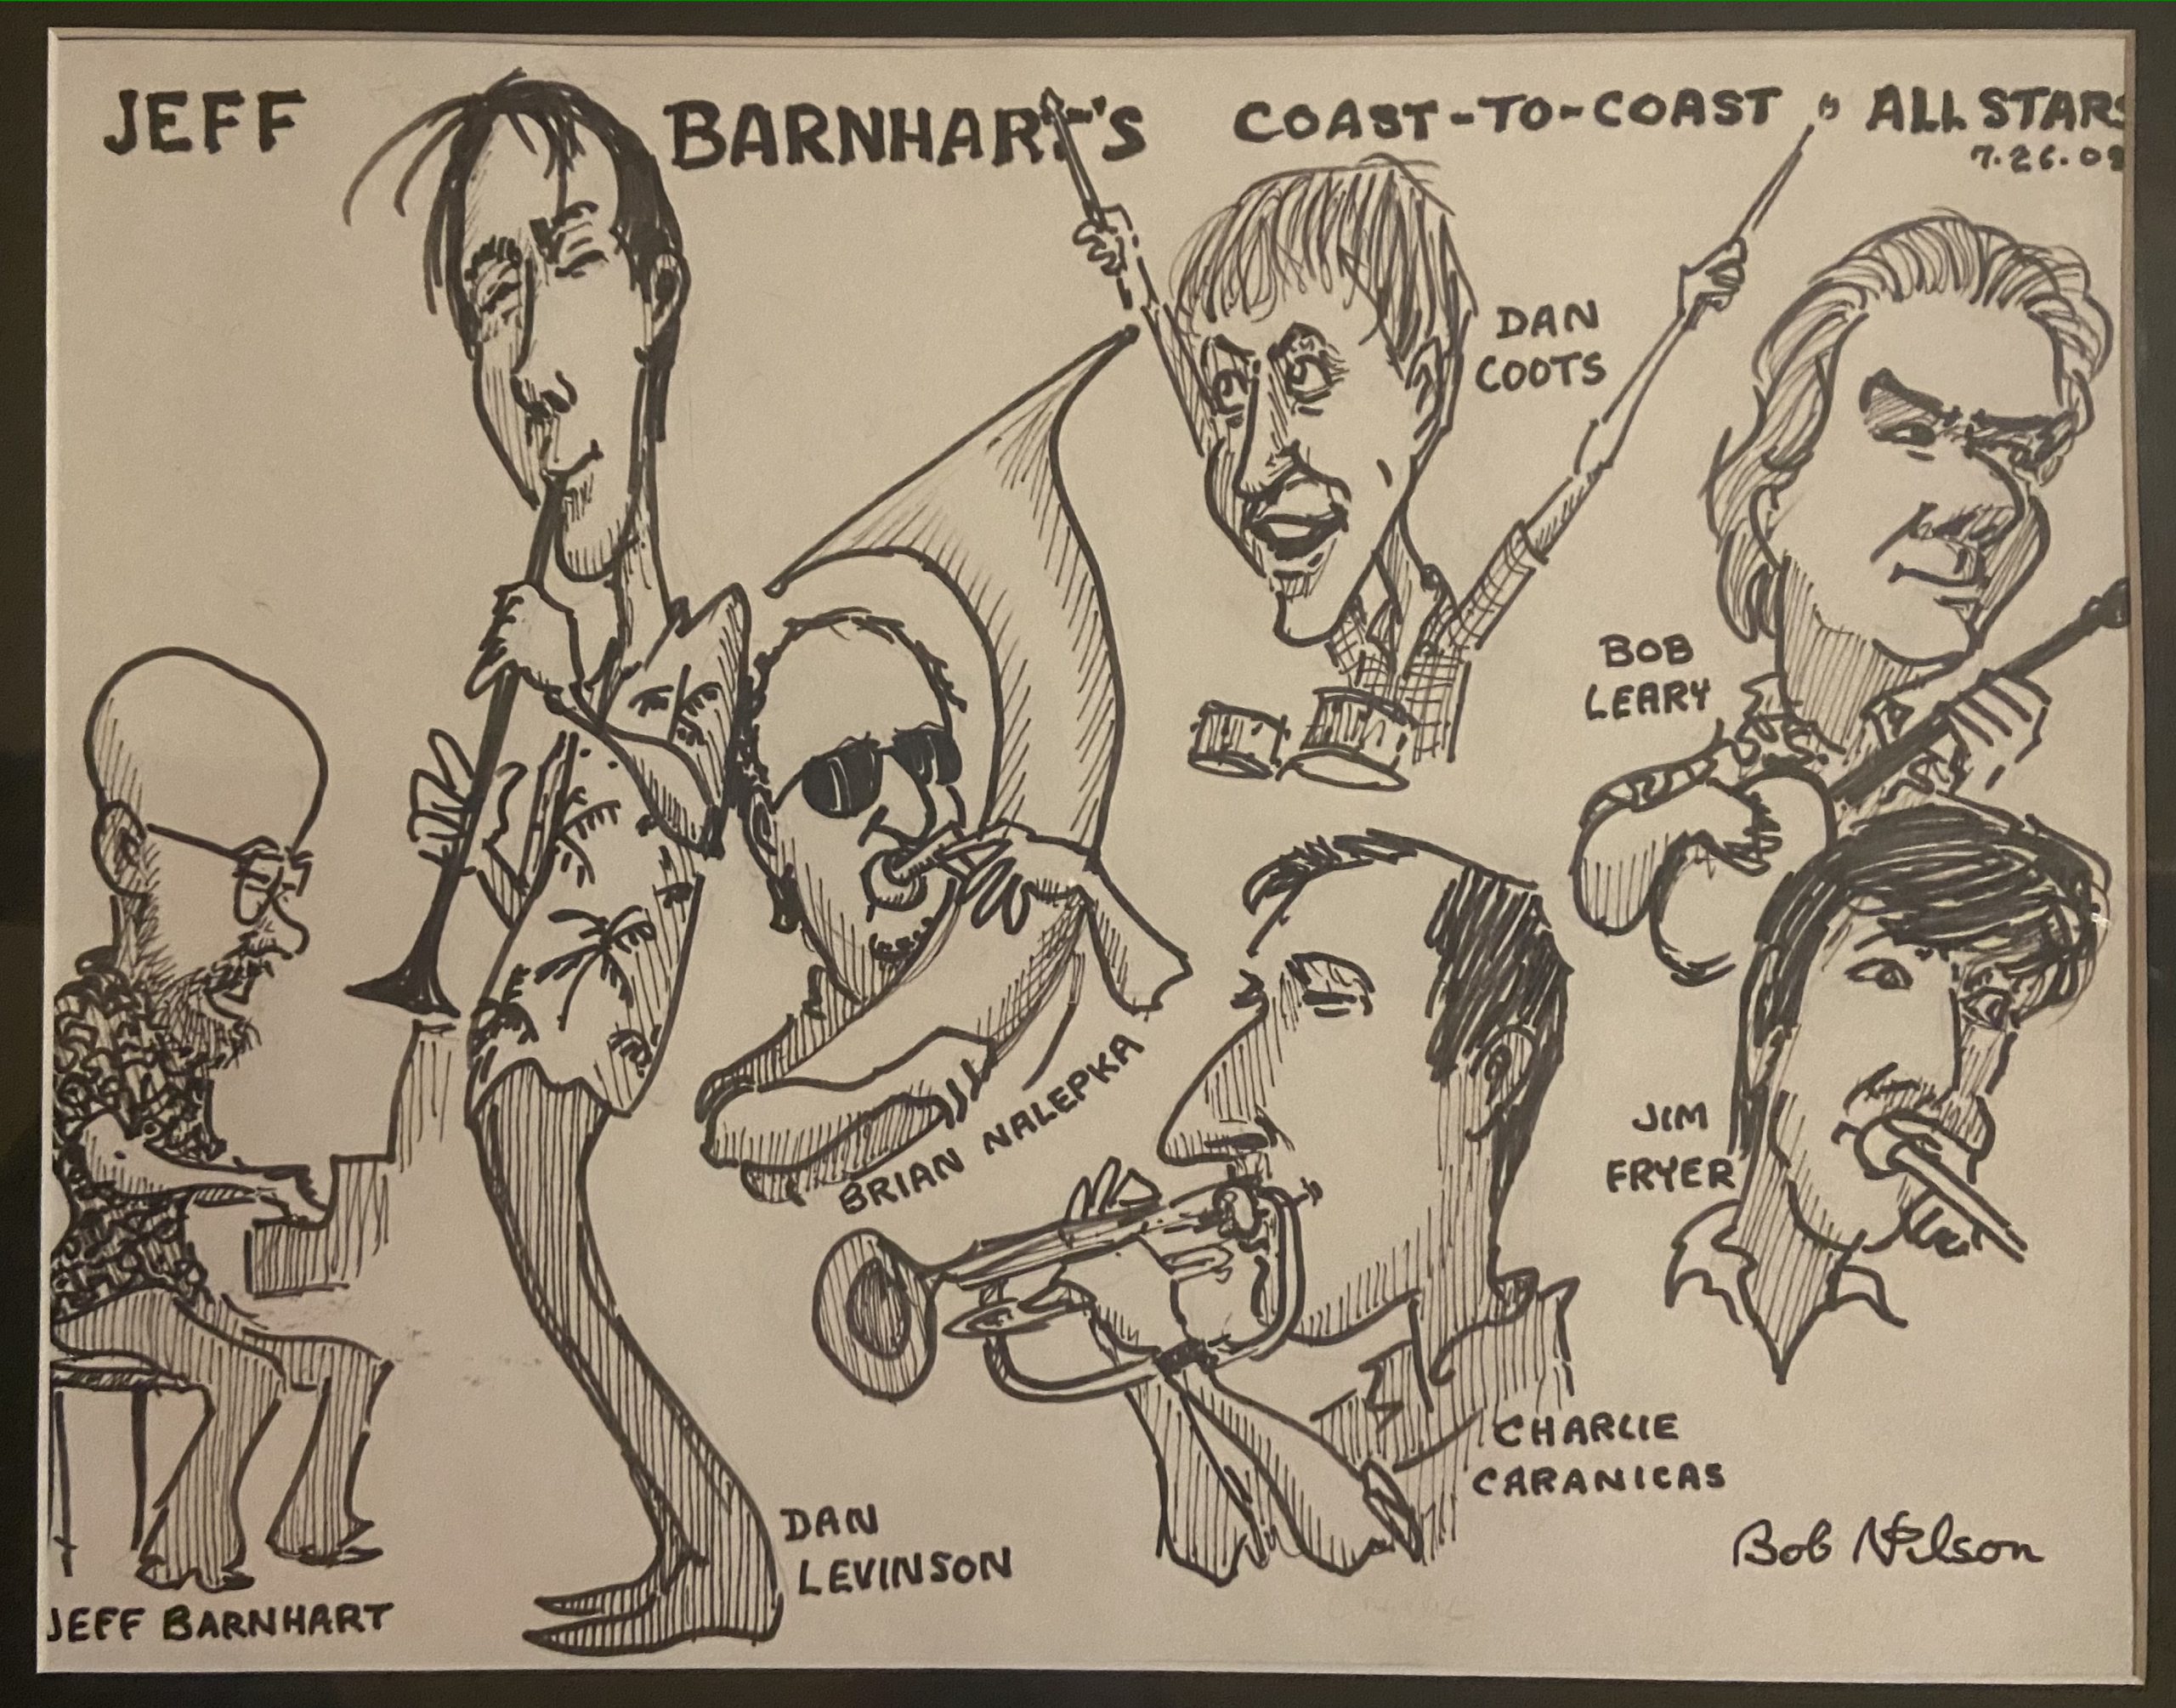 JEFF BARNHART'S COAST-TO-COAST ALL STARS
7.26.08
DAN
COOTS
BOB
LEARY
BRIAN NALEPKA
JIM
FRYER
CHARLIE
CARANICAS
DAN
LEVINSON
Bob Nilson
JEFF BARNHART